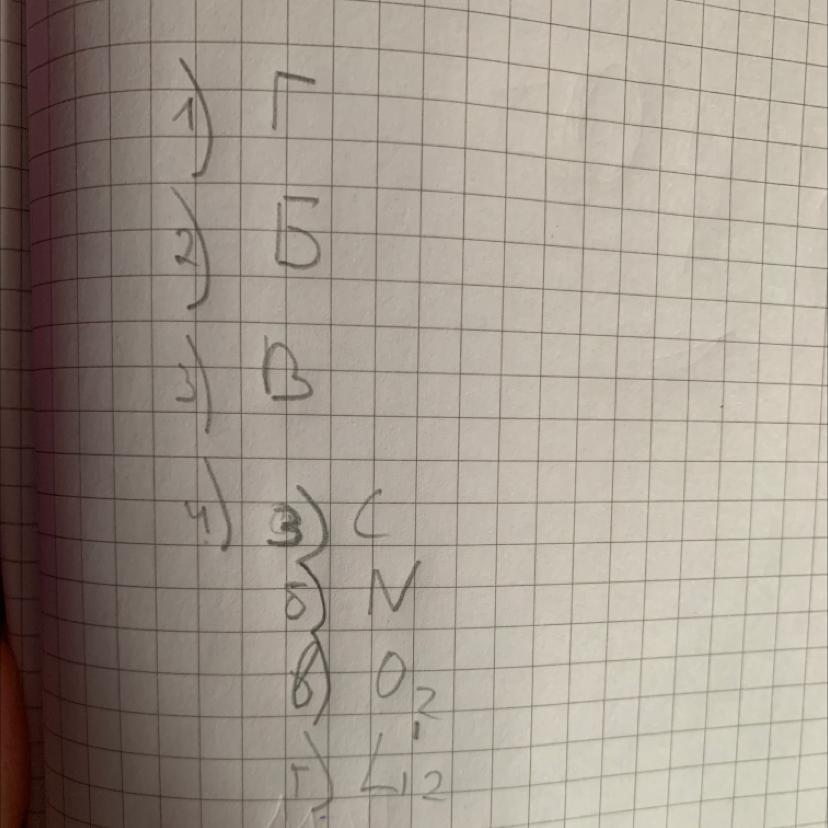 1) Г
2) Б
3) В
4) З) С
б) N
в) O2
г) Li2